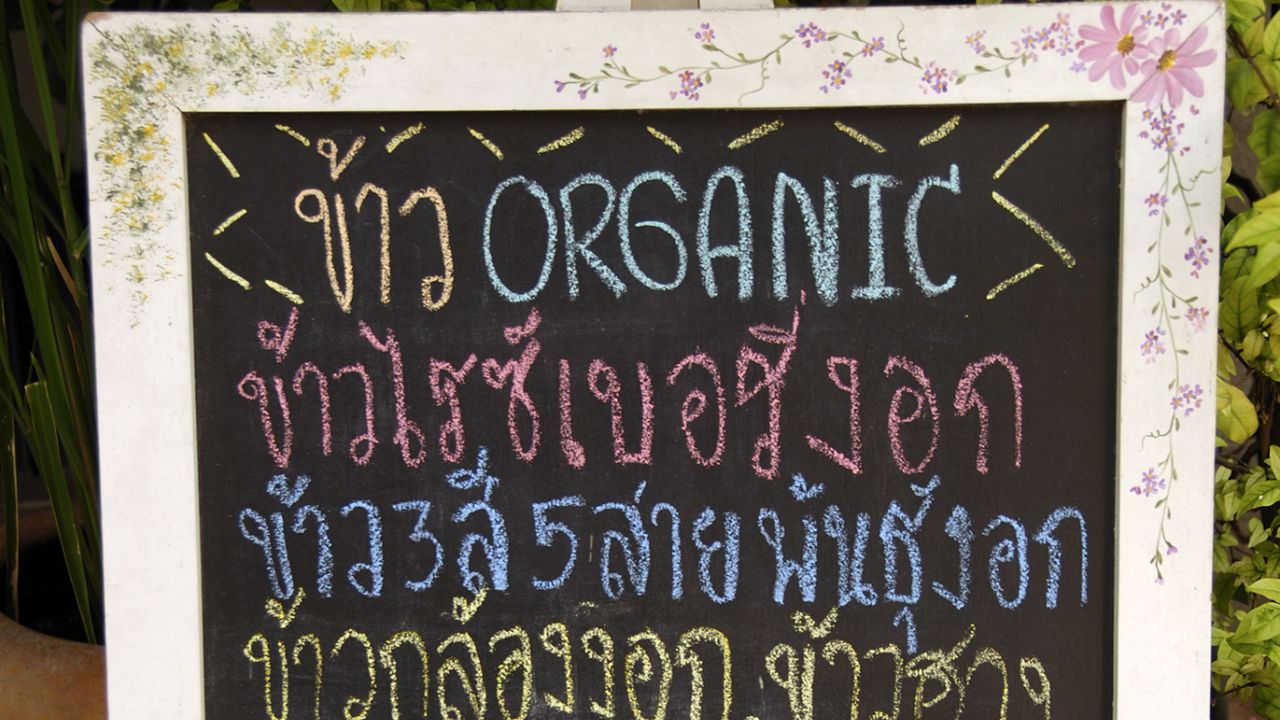 ข้าว ORGANIC
ข้าวไรซ์เบอรี่งอก
ข้าว 3 สี 5 สาย พันธุ์งอก
ข้าวกล้องงอก,ข้าวฮาง